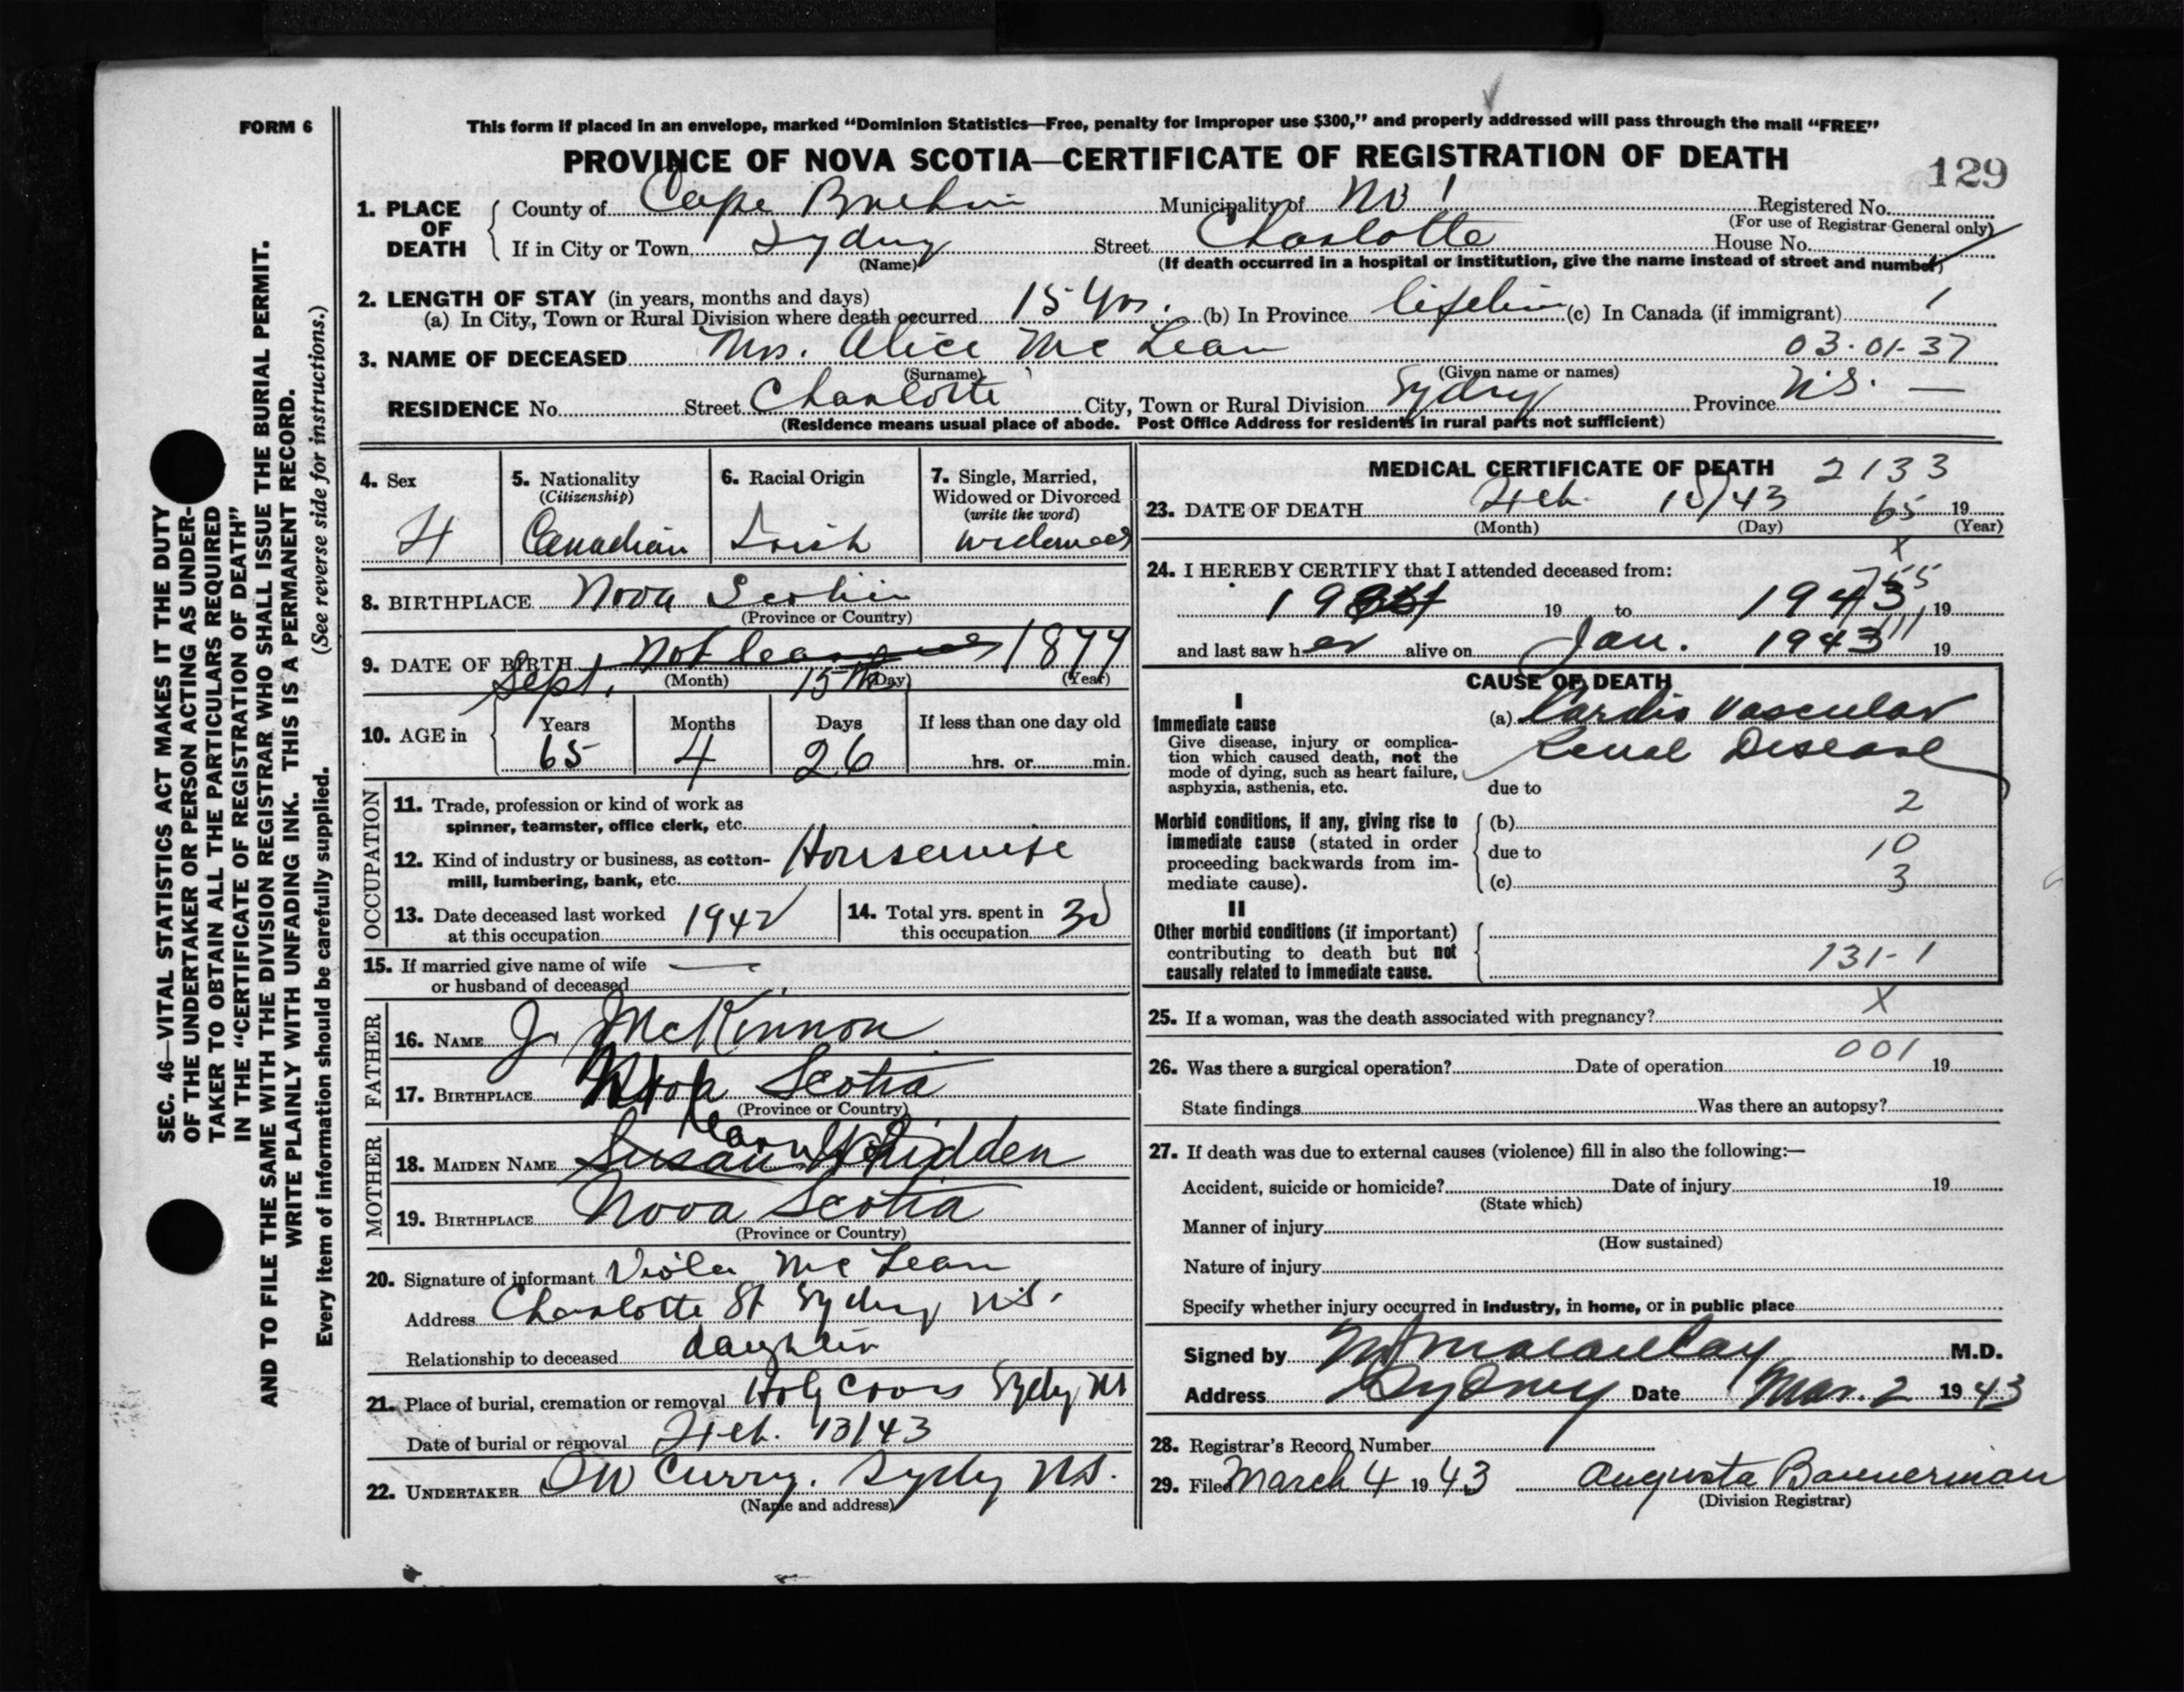 FORM 6
This form if placed in an envelope, marked “Dominion Statistics—Free, penalty for improper use $300,” and properly addressed will pass through the mail “FREE”
PROVINCE OF NOVA SCOTIA—CERTIFICATE OF REGISTRATION OF DEATH
129
1. PLACE OF DEATH
County of Cape Breton Municipality of No 1 Registered No.
(For use of Registrar General only)
If in City or Town Sydney Street Charlotte House No.
(Name)
(If death occurred in a hospital or institution, give the name instead of street and number)
2. LENGTH OF STAY (in years, months and days)
(a) In City, Town or Rural Division where death occurred 15 yrs. (b) In Province lifetime (c) In Canada (if immigrant) 1
3. NAME OF DECEASED Mrs. Alice McLean 03-01-37
(Surname) (Given name or names)
RESIDENCE No. Street Charlotte City, Town or Rural Division Sydney Province N.S. —
(Residence means usual place of abode. Post Office Address for residents in rural parts not sufficient)
SEC. 46—VITAL STATISTICS ACT MAKES IT THE DUTY
OF THE UNDERTAKER OR PERSON ACTING AS UNDER-
TAKER TO OBTAIN ALL THE PARTICULARS REQUIRED
IN THE “CERTIFICATE OF REGISTRATION OF DEATH”
AND TO FILE THE SAME WITH THE DIVISION REGISTRAR WHO SHALL ISSUE THE BURIAL PERMIT.
WRITE PLAINLY WITH UNFADING INK. THIS IS A PERMANENT RECORD.
Every item of information should be carefully supplied. (See reverse side for instructions.)
4. Sex
F
5. Nationality
(Citizenship)
Canadian
6. Racial Origin
Irish
7. Single, Married,
Widowed or Divorced
(write the word)
Widowed
8. BIRTHPLACE Nova Scotia
(Province or Country)
9. DATE OF BIRTH Not learned 1877
Sept. 15th
(Month) (Day) (Year)
10. AGE in
Years Months Days If less than one day old
65 4 26 hrs. or min.
OCCUPATION
11. Trade, profession or kind of work as
spinner, teamster, office clerk, etc.
12. Kind of industry or business, as cotton- Housewife
mill, lumbering, bank, etc.
13. Date deceased last worked 1942
at this occupation
14. Total yrs. spent in 30
this occupation
15. If married give name of wife —
or husband of deceased
FATHER
16. NAME J. McKinnon
17. BIRTHPLACE Nova Scotia
(Province or Country)
MOTHER
18. MAIDEN NAME Susan Whidden
19. BIRTHPLACE Nova Scotia
(Province or Country)
20. Signature of informant Viola McLean
Address Charlotte St Sydney N.S.
Relationship to deceased daughter
21. Place of burial, cremation or removal Holy Cross Sydney NS
Date of burial or removal Feb. 13/43
22. UNDERTAKER Curry, Sydney NS.
(Name and address)
MEDICAL CERTIFICATE OF DEATH 2133
23. DATE OF DEATH Feb. 10/43 65 19
(Month) (Day) (Year)
X
24. I HEREBY CERTIFY that I attended deceased from:
755
19 to 1943, 19
111
and last saw her alive on Jan. 1943 19
CAUSE OF DEATH
I
Immediate cause
Give disease, injury or complica-
tion which caused death, not the
mode of dying, such as heart failure,
asphyxia, asthenia, etc.
(a) Cardio Vascular
Renal Disease
due to
2
Morbid conditions, if any, giving rise to
immediate cause (stated in order
proceeding backwards from im-
mediate cause).
(b)
due to 10
(c) 3
II
Other morbid conditions (if important)
contributing to death but not
causally related to immediate cause.
131-1
X
25. If a woman, was the death associated with pregnancy?
001
26. Was there a surgical operation? Date of operation 19
State findings Was there an autopsy?
27. If death was due to external causes (violence) fill in also the following:—
Accident, suicide or homicide? Date of injury 19
(State which)
Manner of injury
(How sustained)
Nature of injury
Specify whether injury occurred in industry, in home, or in public place
Signed by Macaulay M.D.
Address Sydney Date Mar. 2 1943
28. Registrar's Record Number
29. Filed March 4 1943 Augusta Bannerman
(Division Registrar)